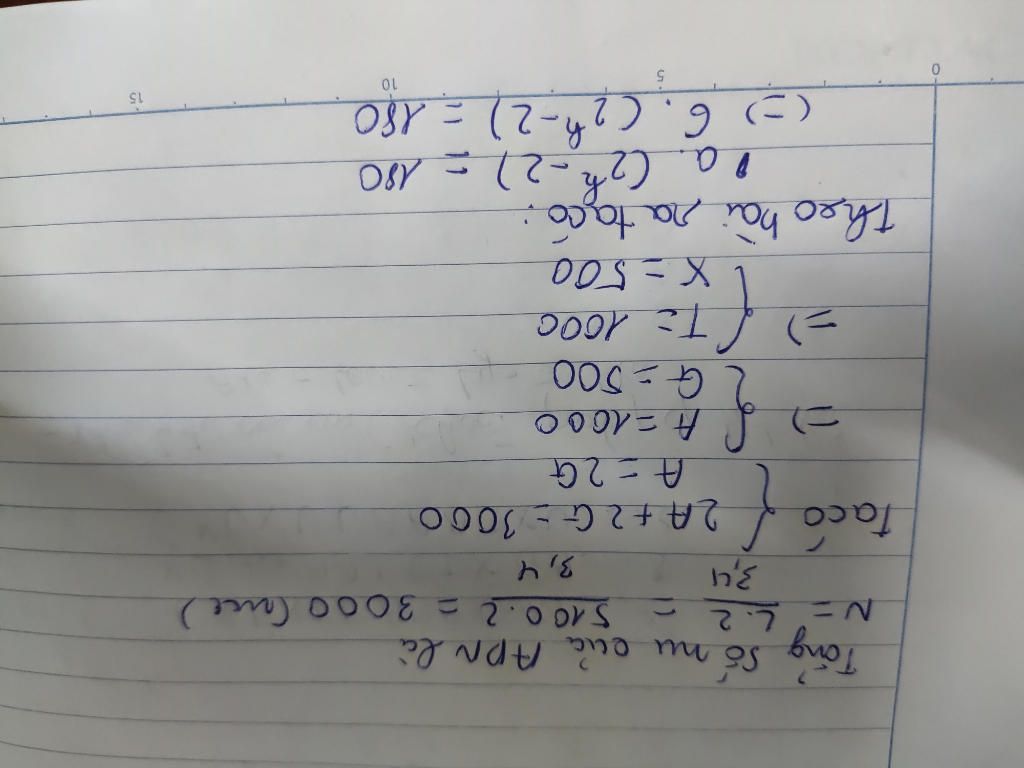 Tổng số nu của ADN là
N = L.2/3,4 = 5100.2/3,4 = 3000 (nu)
Ta có { 2A + 2G = 3000
A = 2G
=> { A = 1000
G = 500
=> { T = 1000
X = 500
Theo bài ra ta có:
a. (2^k - 2) = 180
(=) 6. (2^k - 2) = 180
0 5 10 15